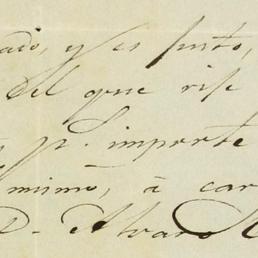 ado, y es justo,
del que rise
p.r importe
mismo, à car
D. Alvaro